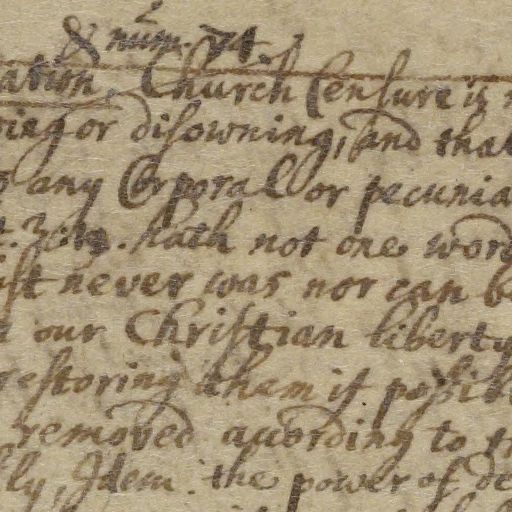 & num. 74.
atim. Church Censure is
ing or disowning, and that
any Corporal or pecunia
. hath not one word
ist never was nor can b
our Christian liberty
restoring them if possibl
removed according to th
ly, Idem. the power of de